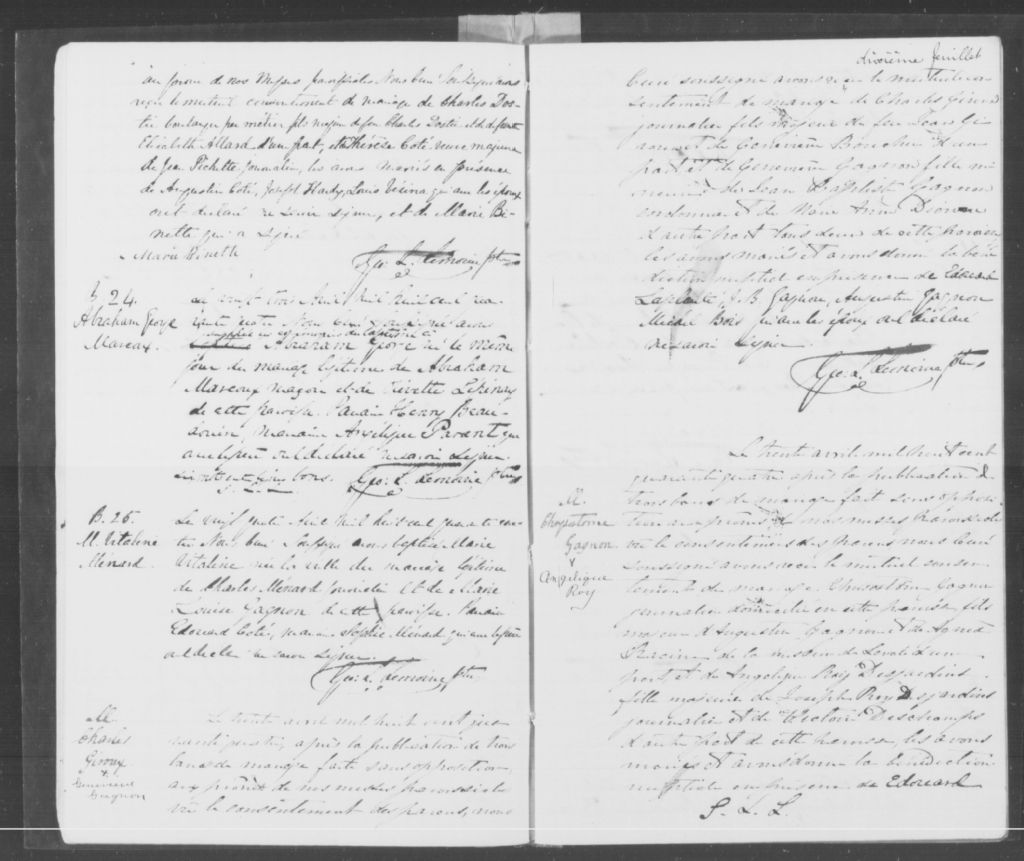 au prone de nos Messes paroissiales Nous Curé Soussigné avons
reçu le mutuel consentement de mariage de Charles Dos-
tie boulanger par métier fils majeur de feu Charles Dostie et de feue
Elizabeth Allard d'une part, et Thérèse Coté veuve majeure
de Jean Pichette journalier, les avons mariés en présence
de Augustin Coté, Joseph Hardy, Louis Vesina, qui avec les époux
ont déclaré ne savoir signer, et de Marie Bi-
nette qui a signé
Marie Binette
Geo. L. Lemoine ptre
B. 24.
Abraham George
Marcoux.
Le vingt trois Avril mil huit cent qua-
rante quatre Nous Curé soussigné avons
Abraham George né le même
jour du mariage légitime de Abraham
Marcoux maçon et de
de cette paroisse. Parain Henry Beau-
douin, Maraine Angélique Parant qui
avec le père ont déclaré ne savoir signer.
bons.
Geo. L. Lemoine ptre
B. 25.
M. Vitaline
Ménard
Le vingt quatre Avril mil huit cent quarante qua-
tre Nous Curé Soussigné avons baptisé Marie
Vitaline née la veille du mariage légitime
de Charles Ménard journalier et de Marie
Louise Gagnon de cette paroisse. Parain
Edouard Coté, maraine Sophie Ménard qui avec le père
ont déclaré ne savoir signer.
Geo. L. Lemoine ptre
M.
Charles
Giroux
+
Genevieve
Gagnon
Le trente avril mil huit cent qua-
rante quatre, après la publication de trois
bans de mariage faite sans opposition
aux prônes de nos messes paroissiales
vu le consentement des parens, nous
dixième feuillet
Curé soussigné avons reçu le mutuel con-
sentement de mariage de Charles Giroux
journalier fils majeur de feu Louis Gi-
roux et de Genevieve Boucher d'une
part et de Genevieve Gagnon fille mi-
neure de Jean Baptiste Gagnon
cordonnier et de Marie Anne Dion
d'autre part tous deux de cette paroisse
les avons mariés et avons donné la béné-
diction nuptiale en présence de Edouard
Laplante, J. B. Gagnon, Augustin Gagnon
Michel Bois qui avec les époux ont déclaré
ne savoir signer
Geo. L. Lemoine ptre
M.
Chrysostome
Gagnon
+
Angelique
Roy
Le trente avril mil huit cent
quarante quatre après la publication de
trois bans de mariage fait sans opposi-
tion aux prônes de nos messes paroissiales
vu le consentement des parens nous Curé
soussigné avons reçu le mutuel consen-
tement de mariage de Chrysostome Gagnon
journalier domicilié en cette paroisse fils
majeur d'Augustin Gagnon et de Agnes
Racine de la mission de Laval d'une
part et de Angelique Roy Desjardins
fille majeure de Joseph Roy Desjardins
journalier et de Victoire Deschamps
d'autre part de cette paroisse, les avons
mariés et avons donné la bénédiction
nuptiale en présence de Edouard
G. L. L.